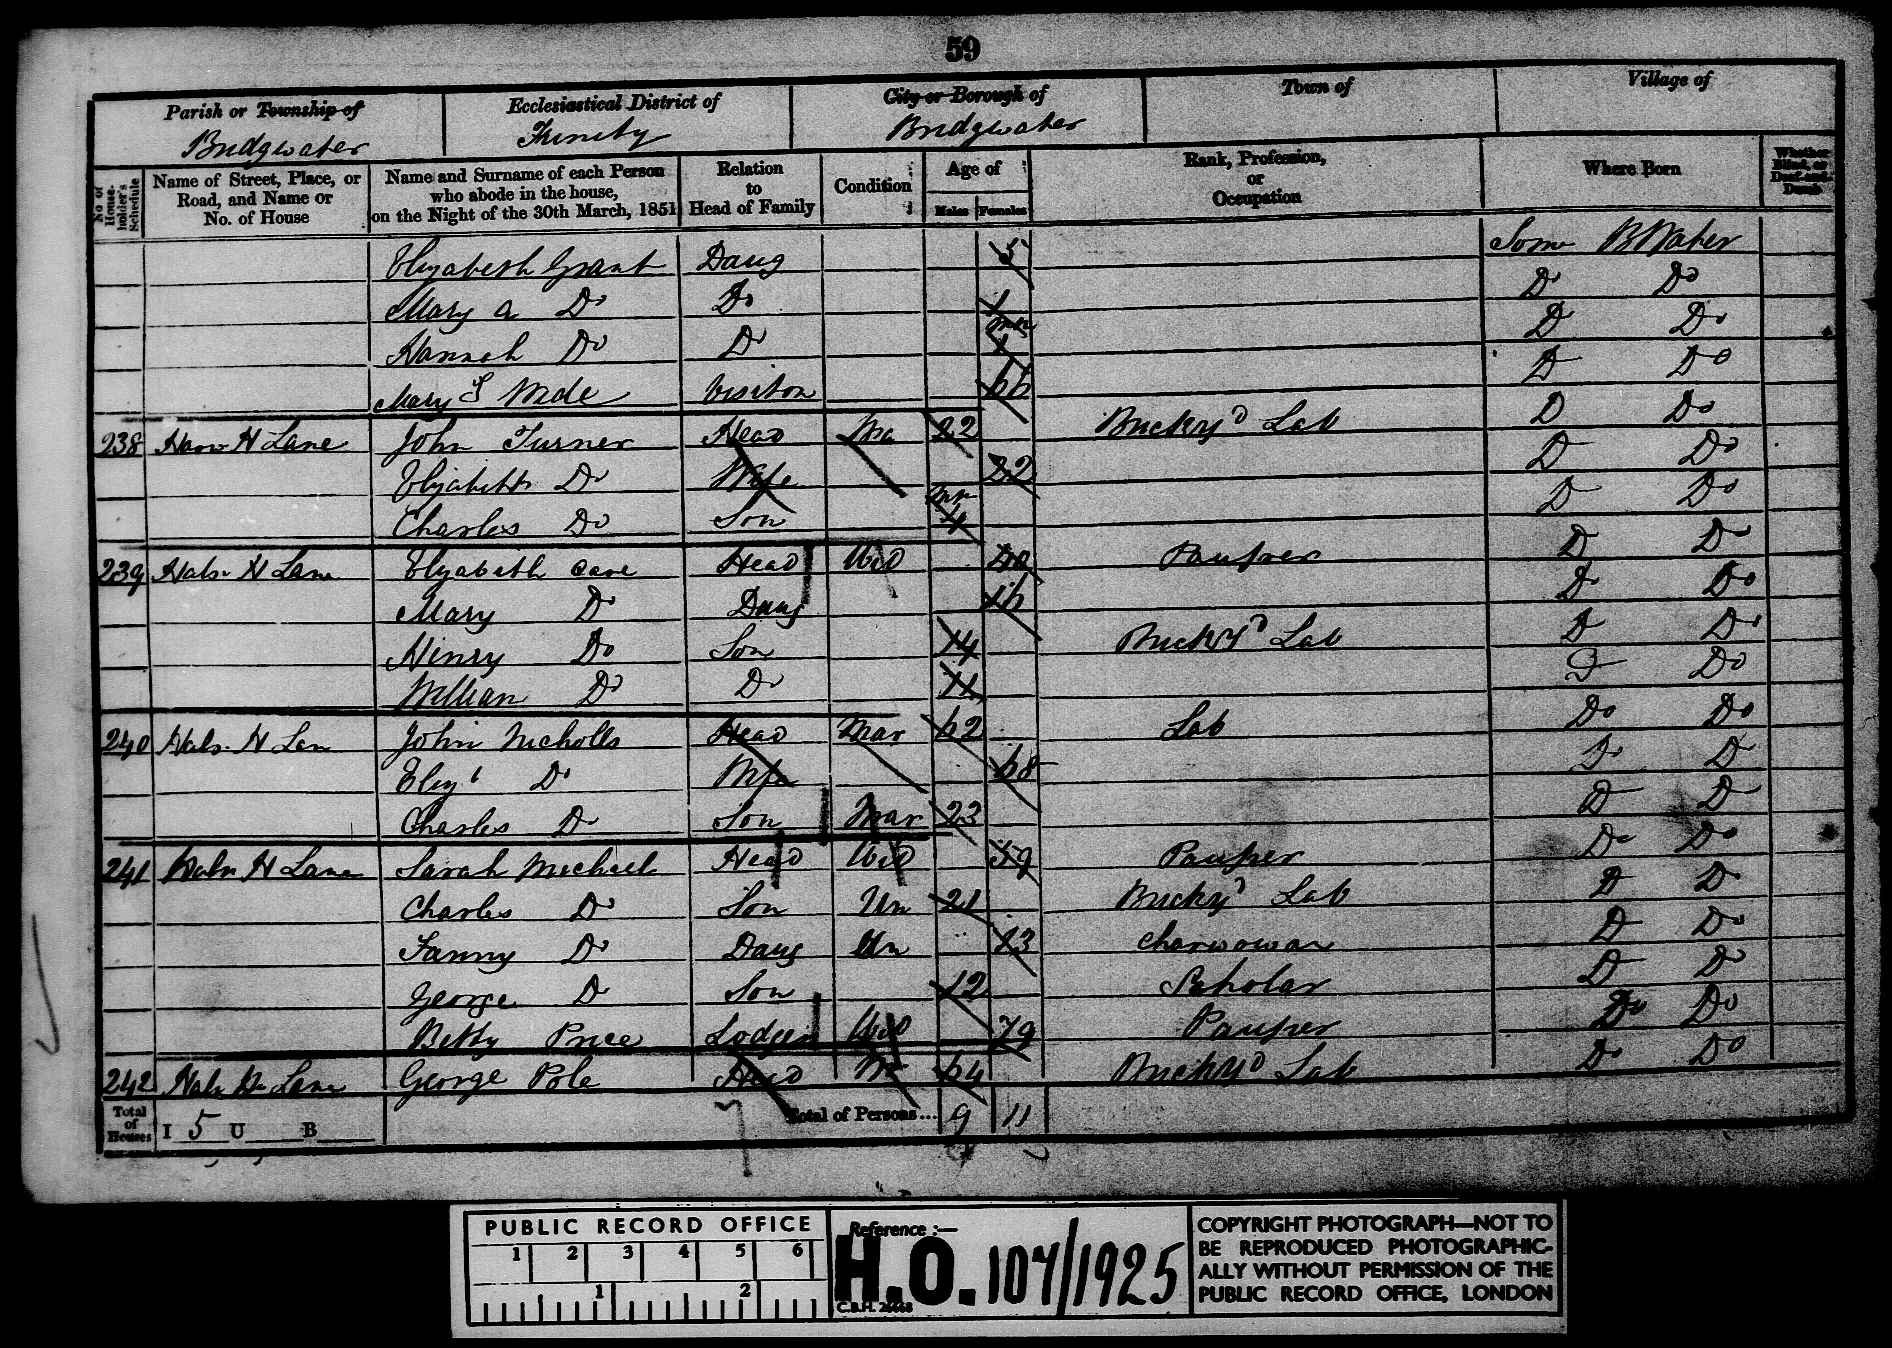 59
Parish or Township of
Bridgwater
Ecclesiastical District of
Trinity
City or Borough of
Bridgwater
Town of
Village of
No. of House-holder's Schedule
Name of Street, Place, or Road, and Name or No. of House
Name and Surname of each Person who abode in the house, on the Night of the 30th March, 1851
Relation to Head of Family
Condition
Age of
Males Females
Rank, Profession, or Occupation
Where Born
Whether Blind, or Deaf-and-Dumb
Elizabeth Grant Daug 5 Som BWater
Mary A Do Do Do Do
Hannah Do Do 1 Do Do
Mary S Visitor 66 Do Do
238 H Lane John Turner Head Ma 22 Bricky'd Lab Do Do
Elizabeth Do Wife 22 Do Do
Charles Do Son 4 Do Do
239 Halr H Lane Elizabeth Care Head Wid 40 Pauper Do Do
Mary Do Daug 16 Do Do
Henry Do Son 14 Bricky'd Lab Do Do
William Do Do 11 Do Do
240 Halr H Lan John Nicholls Head Mar 62 Lab Do Do
Eliz' Do Wife 68 Do Do
Charles Do Son Mar 23 Do Do
241 Halr H Lane Sarah Michael Head Wid 59 Pauper Do Do
Charles Do Son Un 21 Bricky'd Lab Do Do
Fanny Do Daug Un 23 Charwowan Do Do
George Do Son 12 Scholar Do Do
Betty Price Lodger Wid 79 Pauper Do Do
242 Halr H Lane George Pole Head M 64 Bricky'd Lab Do Do
Total of Houses I 5 U B Total of Persons... 9 11
PUBLIC RECORD OFFICE
1 2 3 4 5 6
1 2
Reference :—
H.O. 107/1925
C.B.H. 26668
COPYRIGHT PHOTOGRAPH—NOT TO
BE REPRODUCED PHOTOGRAPHIC-
ALLY WITHOUT PERMISSION OF THE
PUBLIC RECORD OFFICE, LONDON